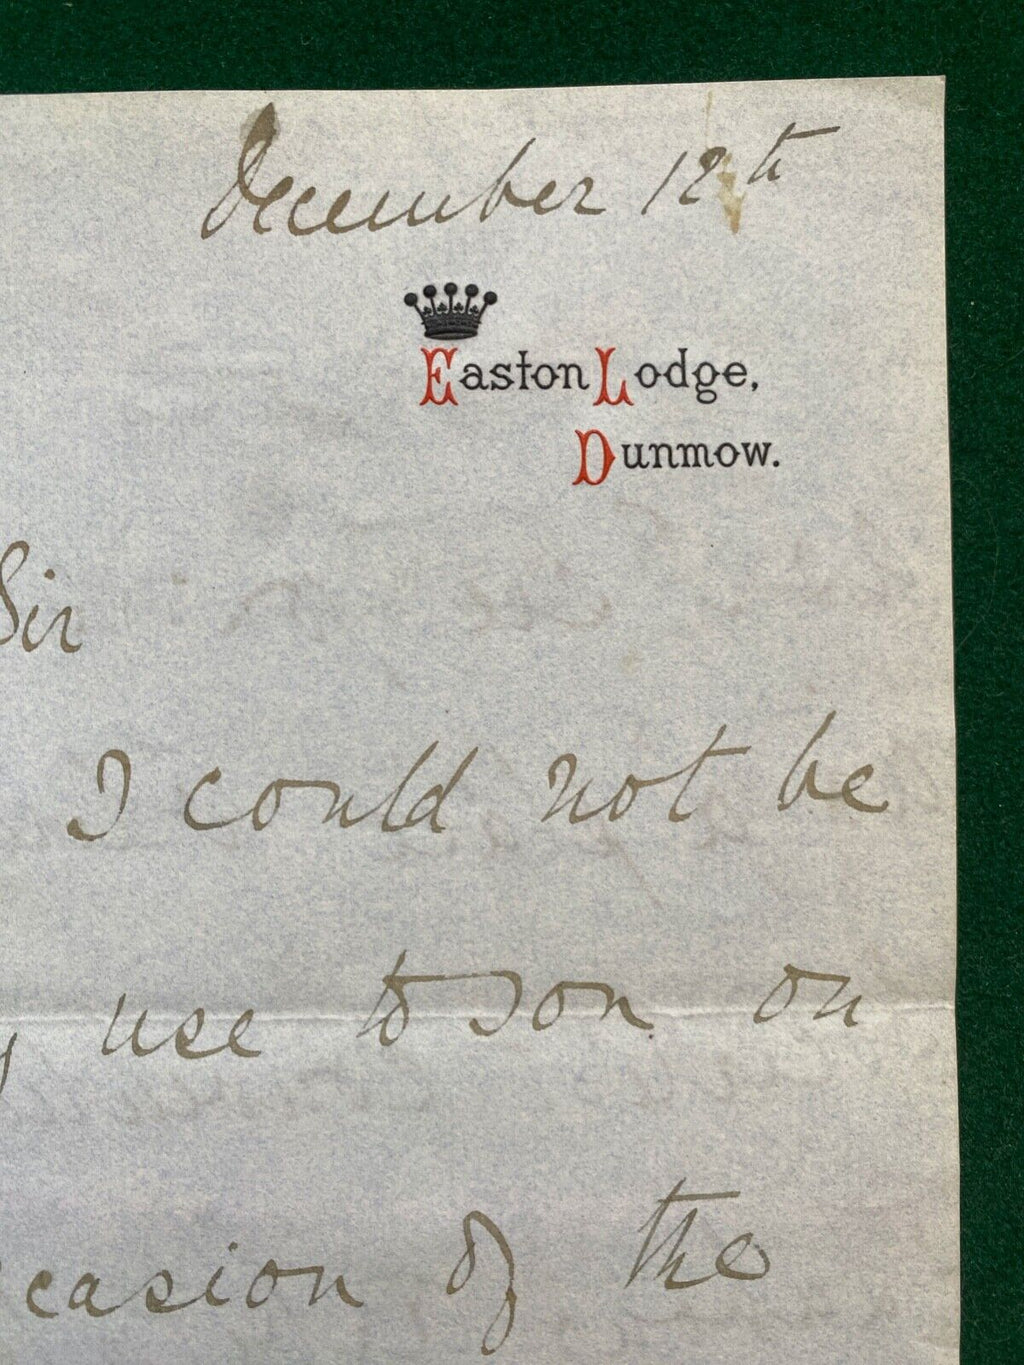 December 12th
Easton Lodge,
Dunmow.
Sir
I could not be
y use to you on
ccasion of the